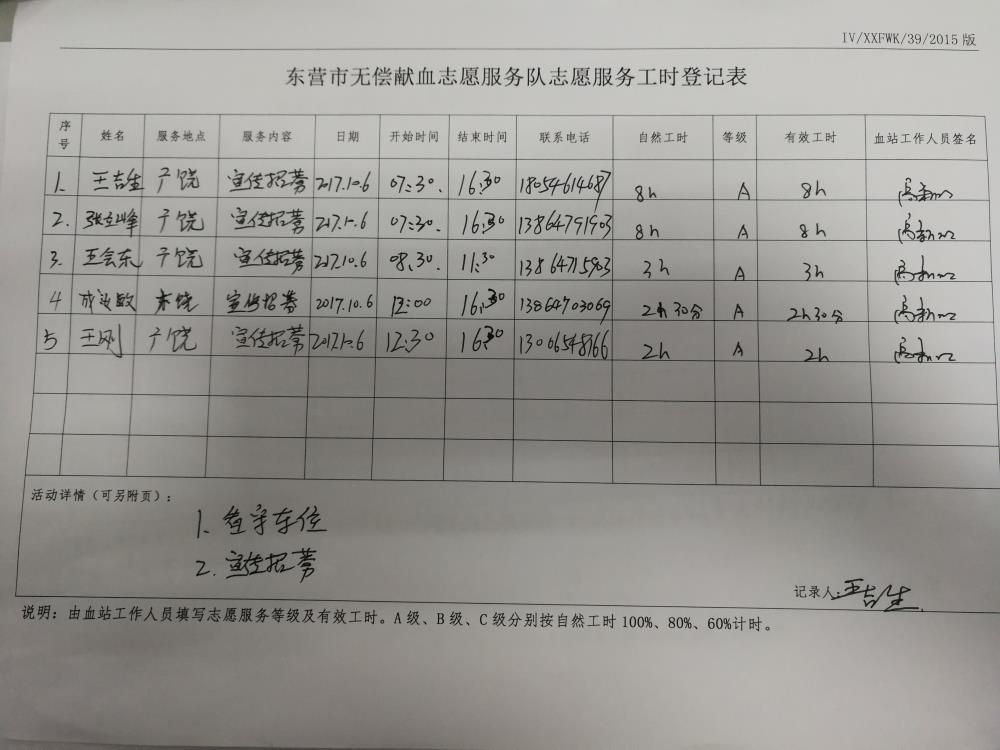 IV/XXFWK/39/2015 版
东营市无偿献血志愿服务队志愿服务工时登记表
序号 姓名 服务地点 服务内容 日期 开始时间 结束时间 联系电话 自然工时 等级 有效工时 血站工作人员签名
1. 王吉生 广饶 宣传招募 2017.10.6 07:30. 16:30 18054614687 8h A 8h
2. 张立峰 广饶 宣传招募 2017.10.6 07:30. 16:30 13864791903 8h A 8h
3. 王会东 广饶 宣传招募 2017.10.6 08.30. 11:30 13864715903 3h A 3h
4 广饶 宣传招募 2017.10.6 16:30 13864703069 2h30分 A 2h30分
5 王刚 广饶 宣传招募 2017.10.6 12:30 16:30 13006548766 2h A 2h
活动详情（可另附页）：
1. 车位
2. 宣传招募
记录人: 王吉生
说明：由血站工作人员填写志愿服务等级及有效工时。A 级、B 级、C 级分别按自然工时 100%、80%、60%计时。